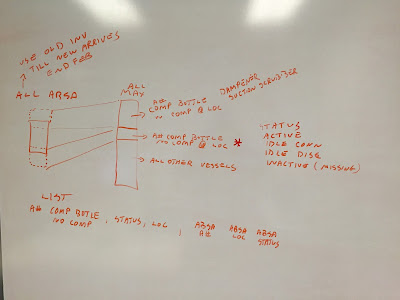 USE OLD INV
TILL NEW ARRIVES
END FEB
ALL ABSA
ALL
MAX
A# COMP BOTTLE
w COMP @ LOC
DAMPENER
SUCTION SCRUBBER
A# COMP BOTTLE
NO COMP @ LOC *
ALL OTHER VESSELS
STATUS
ACTIVE
IDLE CONN
IDLE DISC
INACTIVE (MISSING)
LIST
A# COMP BOTLE , STATUS, LOC , ABSA ABSA ABSA
NO COMP A# LOC STATUS